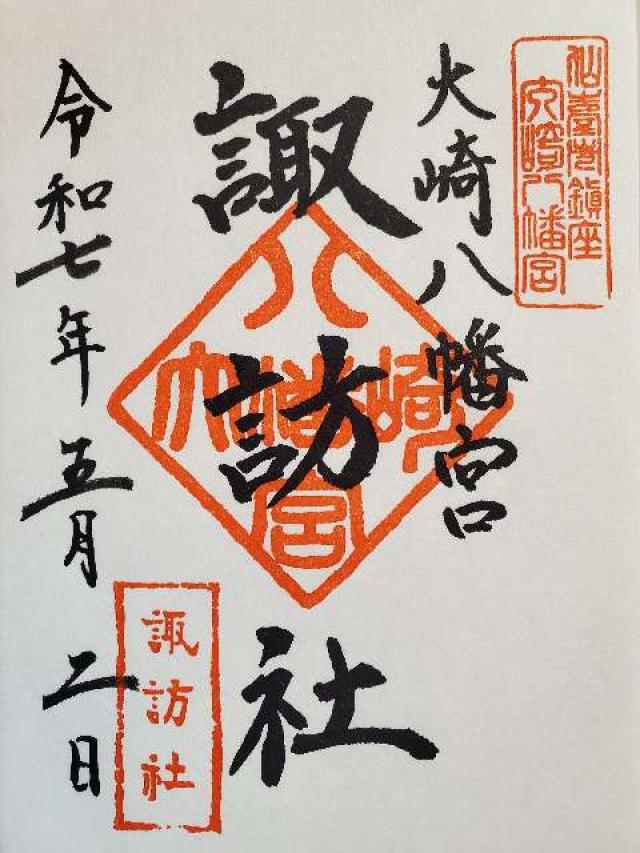 仙臺市鎮座
大崎八幡宮
大崎八幡宮
諏訪社
八
大幡崎
宮
諏訪社
令和七年五月二日